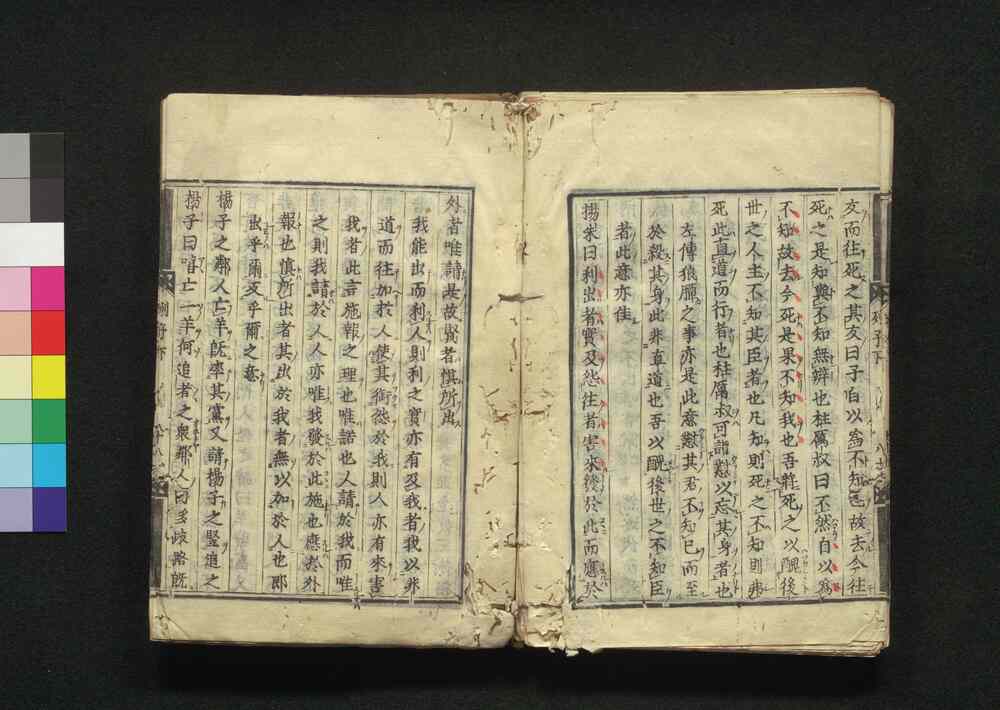 友而往死之其友曰子自以為不知已故去今往
死之是知與不知無辨也柱厲叔曰不然自以為
不知故去今死是果不知我也吾將死之以醜後
世之人主不知其臣者也凡知則死之不知則弗
死此直道而行者也柱厲叔可謂懟以忘其身者也
左傳狼瞫之事亦是此意懟其君不知已而至
於殺其身此非直道也吾以醜後世之不知臣
者此意亦佳
揚朱曰利出者實及怨往者害來發於此而應於
外者唯請是故賢者慎所出
我能出而利人則利之實亦有及我者我以非
道而往加於人使其銜怨於我則人亦有來害
我者此言施報之理也唯諾也人請於我而唯
之則我請於人人亦唯我發於此施也應於外
報也慎所出者其出於我者無以加於人也即
出乎爾反乎爾之意
揚子之鄰人亡羊既率其黨又請揚子之豎追之
揚子曰嘻亡一羊何追者之眾鄰人曰多歧路既
列子下
列子下